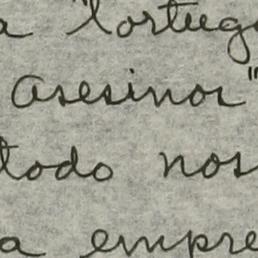 a "Tortuga
asesinos"
todo nos
a empre